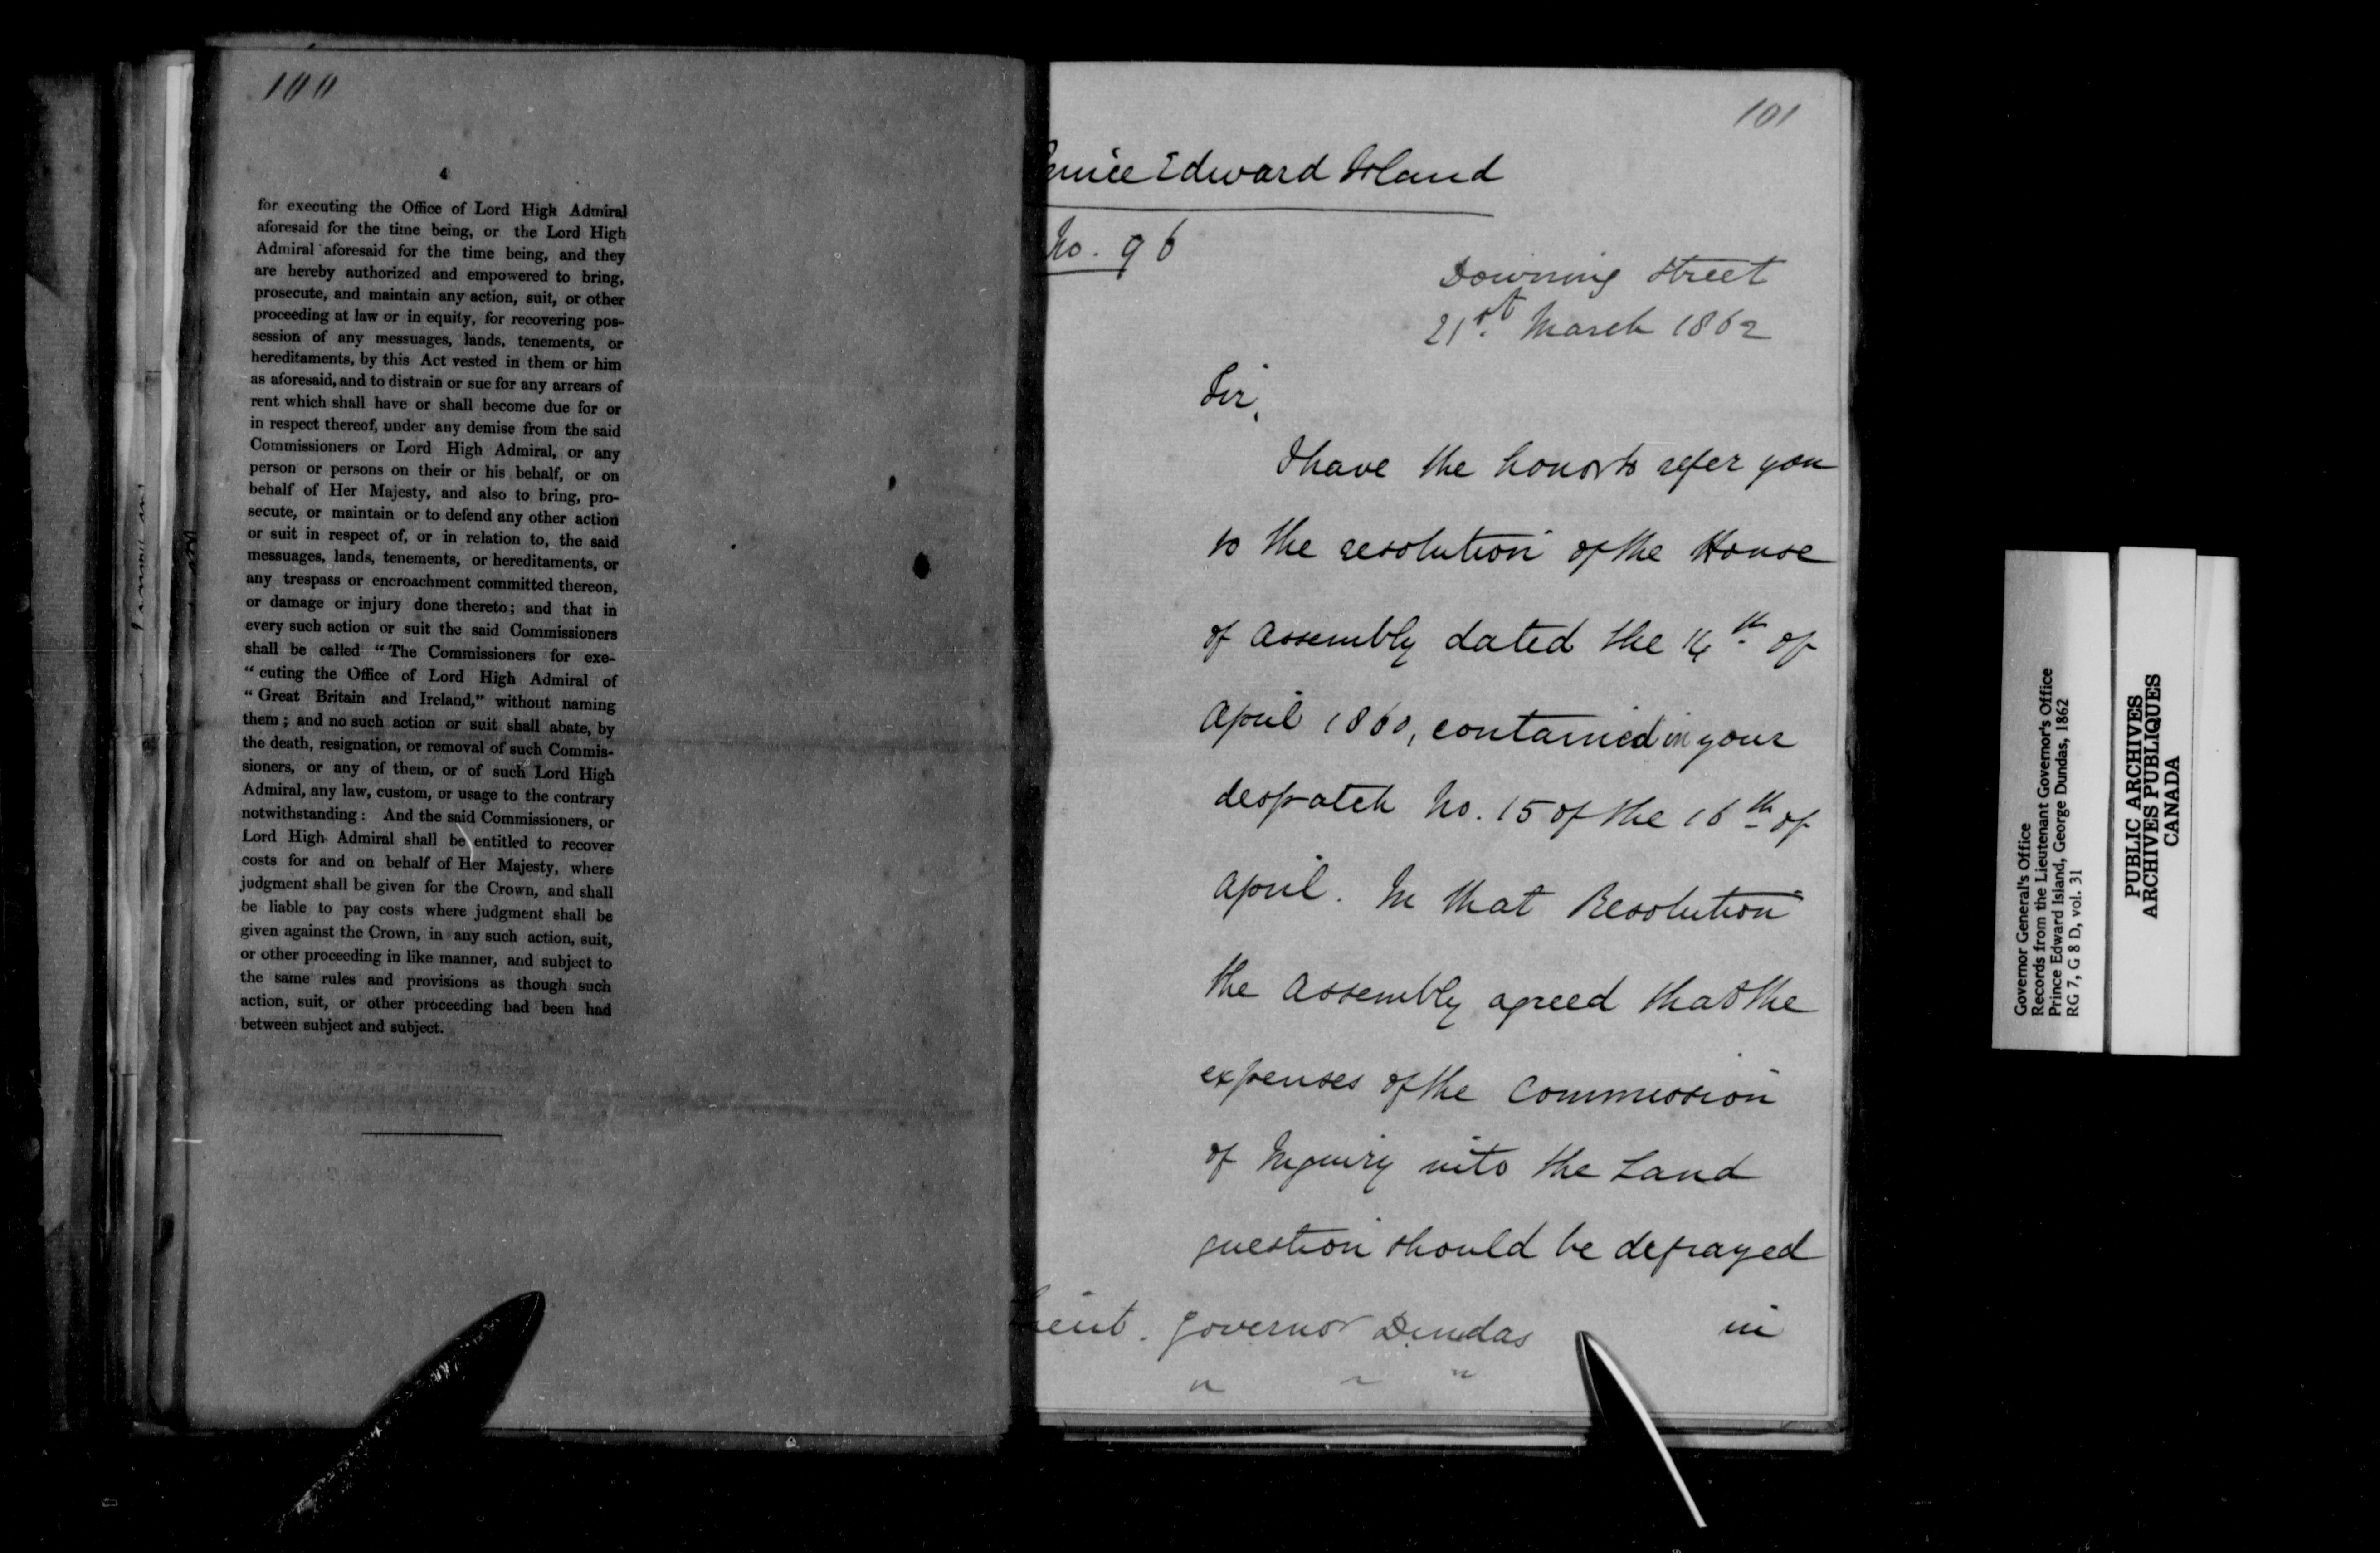 100
4
for executing the Office of Lord High Admiral
aforesaid for the time being, or the Lord High
Admiral aforesaid for the time being, and they
are hereby authorized and empowered to bring,
prosecute, and maintain any action, suit, or other
proceeding at law or in equity, for recovering pos-
session of any messuages, lands, tenements, or
hereditaments, by this Act vested in them or him
as aforesaid, and to distrain or sue for any arrears of
rent which shall have or shall become due for or
in respect thereof, under any demise from the said
Commissioners or Lord High Admiral, or any
person or persons on their or his behalf, or on
behalf of Her Majesty, and also to bring, pro-
secute, or maintain or to defend any other action
or suit in respect of, or in relation to, the said
messuages, lands, tenements, or hereditaments, or
any trespass or encroachment committed thereon,
or damage or injury done thereto; and that in
every such action or suit the said Commissioners
shall be called "The Commissioners for exe-
"cuting the Office of Lord High Admiral of
"Great Britain and Ireland," without naming
them; and no such action or suit shall abate, by
the death, resignation, or removal of such Commis-
sioners, or any of them, or of such Lord High
Admiral, any law, custom, or usage to the contrary
notwithstanding: And the said Commissioners, or
Lord High Admiral shall be entitled to recover
costs for and on behalf of Her Majesty, where
judgment shall be given for the Crown, and shall
be liable to pay costs where judgment shall be
given against the Crown, in any such action, suit,
or other proceeding in like manner, and subject to
the same rules and provisions as though such
action, suit, or other proceeding had been had
between subject and subject.
101
Edward Island
No. 96
Downing Street
21st. March 1862
Sir,
I have the honor to refer you
to the resolution of the House
of Assembly dated the th of
April 1860, contained in your
despatch No. 15 of the 16th of
April. In that Resolution
the Assembly agreed that the
expenses of the Commission
of Inquiry into the Land
question should be defrayed
Governor Dundas
in
" " "
Governor General's Office
Records from the Lieutenant Governor's Office
Prince Edward Island, George Dundas, 1862
RG 7, G 8 D, vol. 31
PUBLIC ARCHIVES
ARCHIVES PUBLIQUES
CANADA